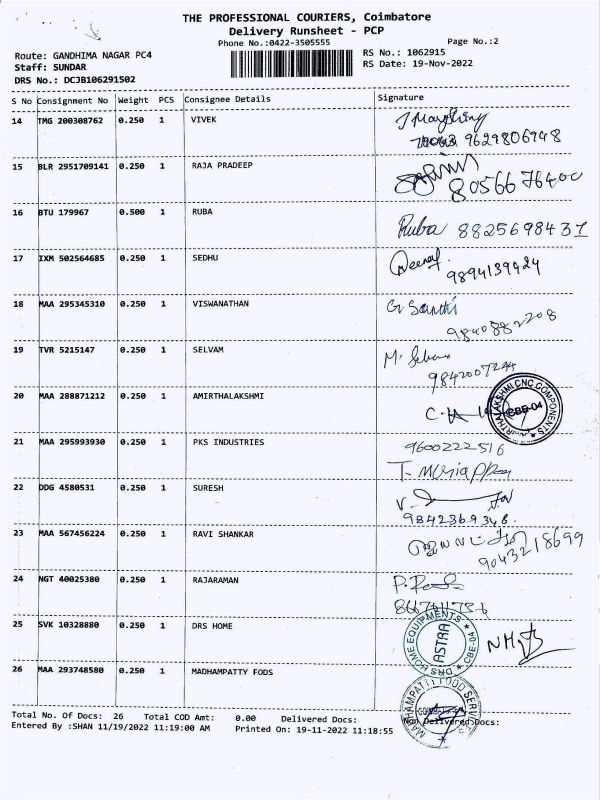 THE PROFESSIONAL COURIERS, Coimbatore
Delivery Runsheet - PCP
Phone No.:0422-3505555 Page No.:2
Route: GANDHIMA NAGAR PC4 RS No.: 1062915
Staff: SUNDAR RS Date: 19-Nov-2022
DRS No.: DCJB106291502
S No Consignment No Weight PCS Consignee Details Signature
14 TMG 200308762 0.250 1 VIVEK
9629806948
15 BLR 2951709141 0.250 1 RAJA PRADEEP
8056676400
16 BTU 179967 0.500 1 RUBA
Ruba 8825698437
17 IXM 502564685 0.250 1 SEDHU
9894139424
18 MAA 295345310 0.250 1 VISWANATHAN
G. Santhi
9840882208
19 TVR 5215147 0.250 1 SELVAM
9842007244
20 MAA 288871212 0.250 1 AMIRTHALAKSHMI
CNC COMPONENTS
CBE-04
21 MAA 295993930 0.250 1 PKS INDUSTRIES
9600222516
22 DDG 4580531 0.250 1 SURESH
9842369348
23 MAA 567456224 0.250 1 RAVI SHANKAR
9043218699
24 NGT 40025380 0.250 1 RAJARAMAN
25 SVK 10328880 0.250 1 DRS HOME
DRS HOME EQUIPMENTS
ASTRA
CBE-04
26 MAA 293748580 0.250 1 MADHAMPATTY FODS
Total No. Of Docs: 26 Total COD Amt: 0.00 Delivered Docs: Non Delivered Docs:
Entered By :SHAN 11/19/2022 11:19:00 AM Printed On: 19-11-2022 11:18:55